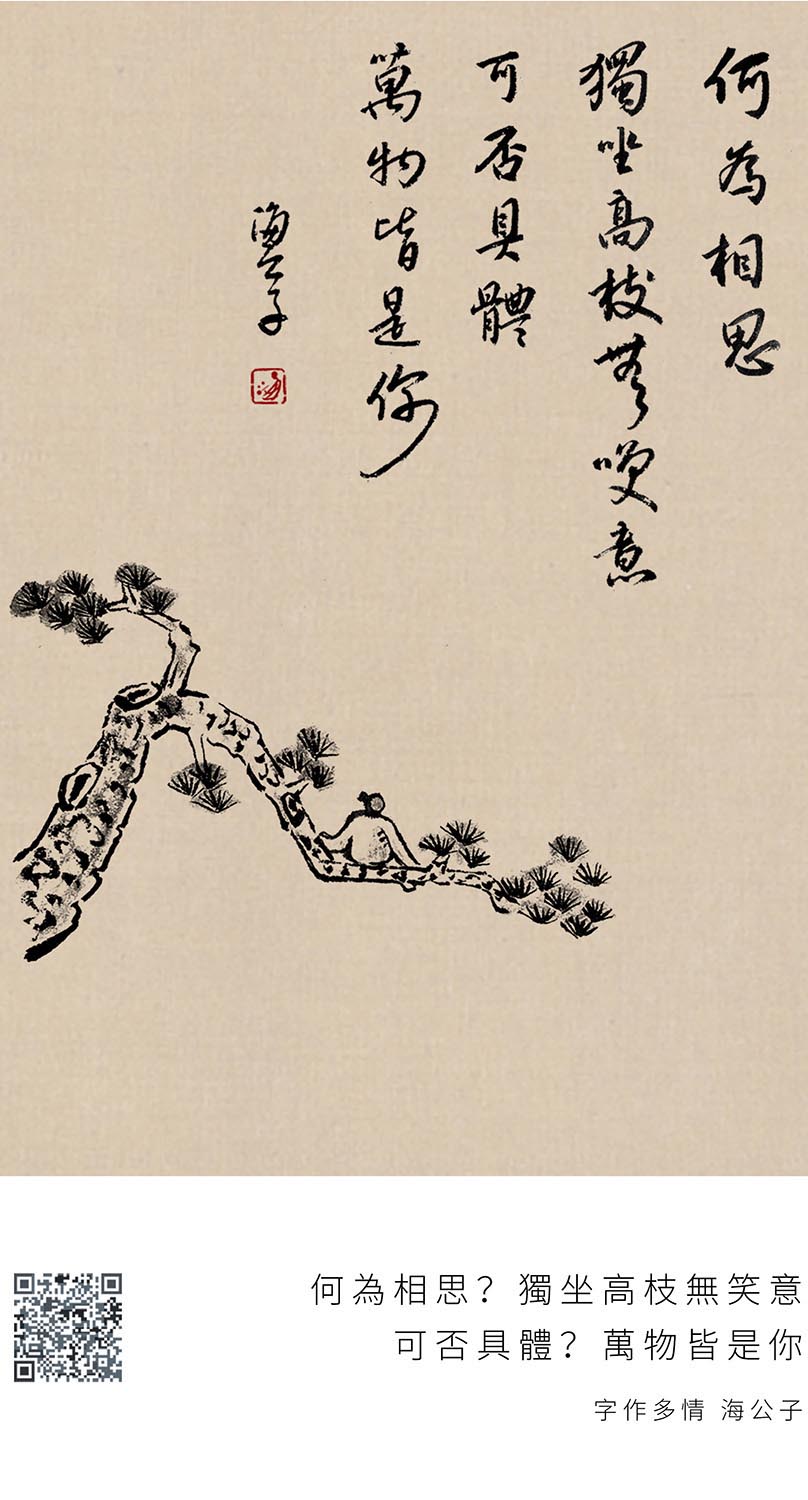 何為相思
獨坐高枝無㗛意
可否具體
萬物皆是你
海公子
何為相思？獨坐高枝無笑意
可否具體？萬物皆是你
字作多情 海公子